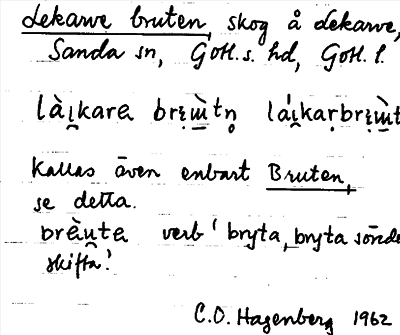 Lekarve bruten, skog å Lekarve,
Sanda sn, Gotl. s. hd, Gotl. l.
Kallas även enbart Bruten,
se detta.
verb 'bryta, bryta sönde
skifta'.
C.O. Hagenberg 1962